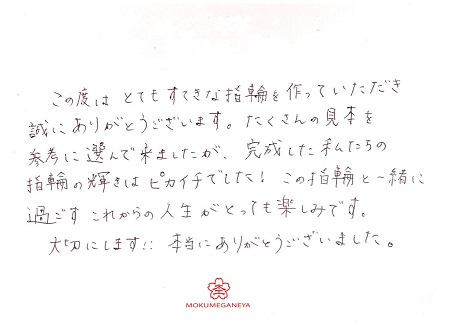 この度は とても すてきな 指輪を 作っていただき
誠に ありがとうございます。たくさんの見本を
参考に 選んで 来ましたが、完成した 私たちの
指輪の 輝きは ピカイチでした! この指輪と一緒に
過ごす これからの 人生が とっても 楽しみです。
大切にします!! 本当に ありがとうございました。
MOKUMEGANEYA